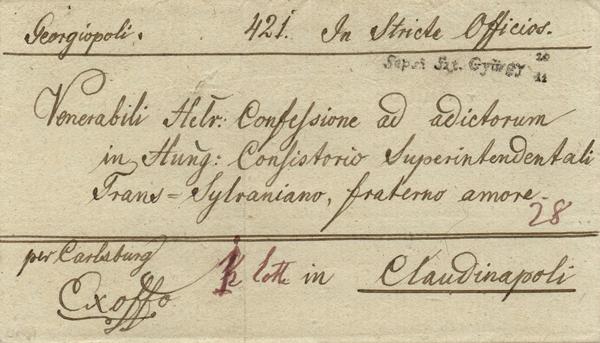 Georgiopoli. 421. In Stricte Officios.
Sepsi Szt. György 20 11
Venerabili Helv: Confessione ad adictorum
in Hung: Consistorio Superintendentali
Trans=Sylvaniano, fraterno amore
28
per Carlsburg
Exoffo
½ loth in Claudinapoli